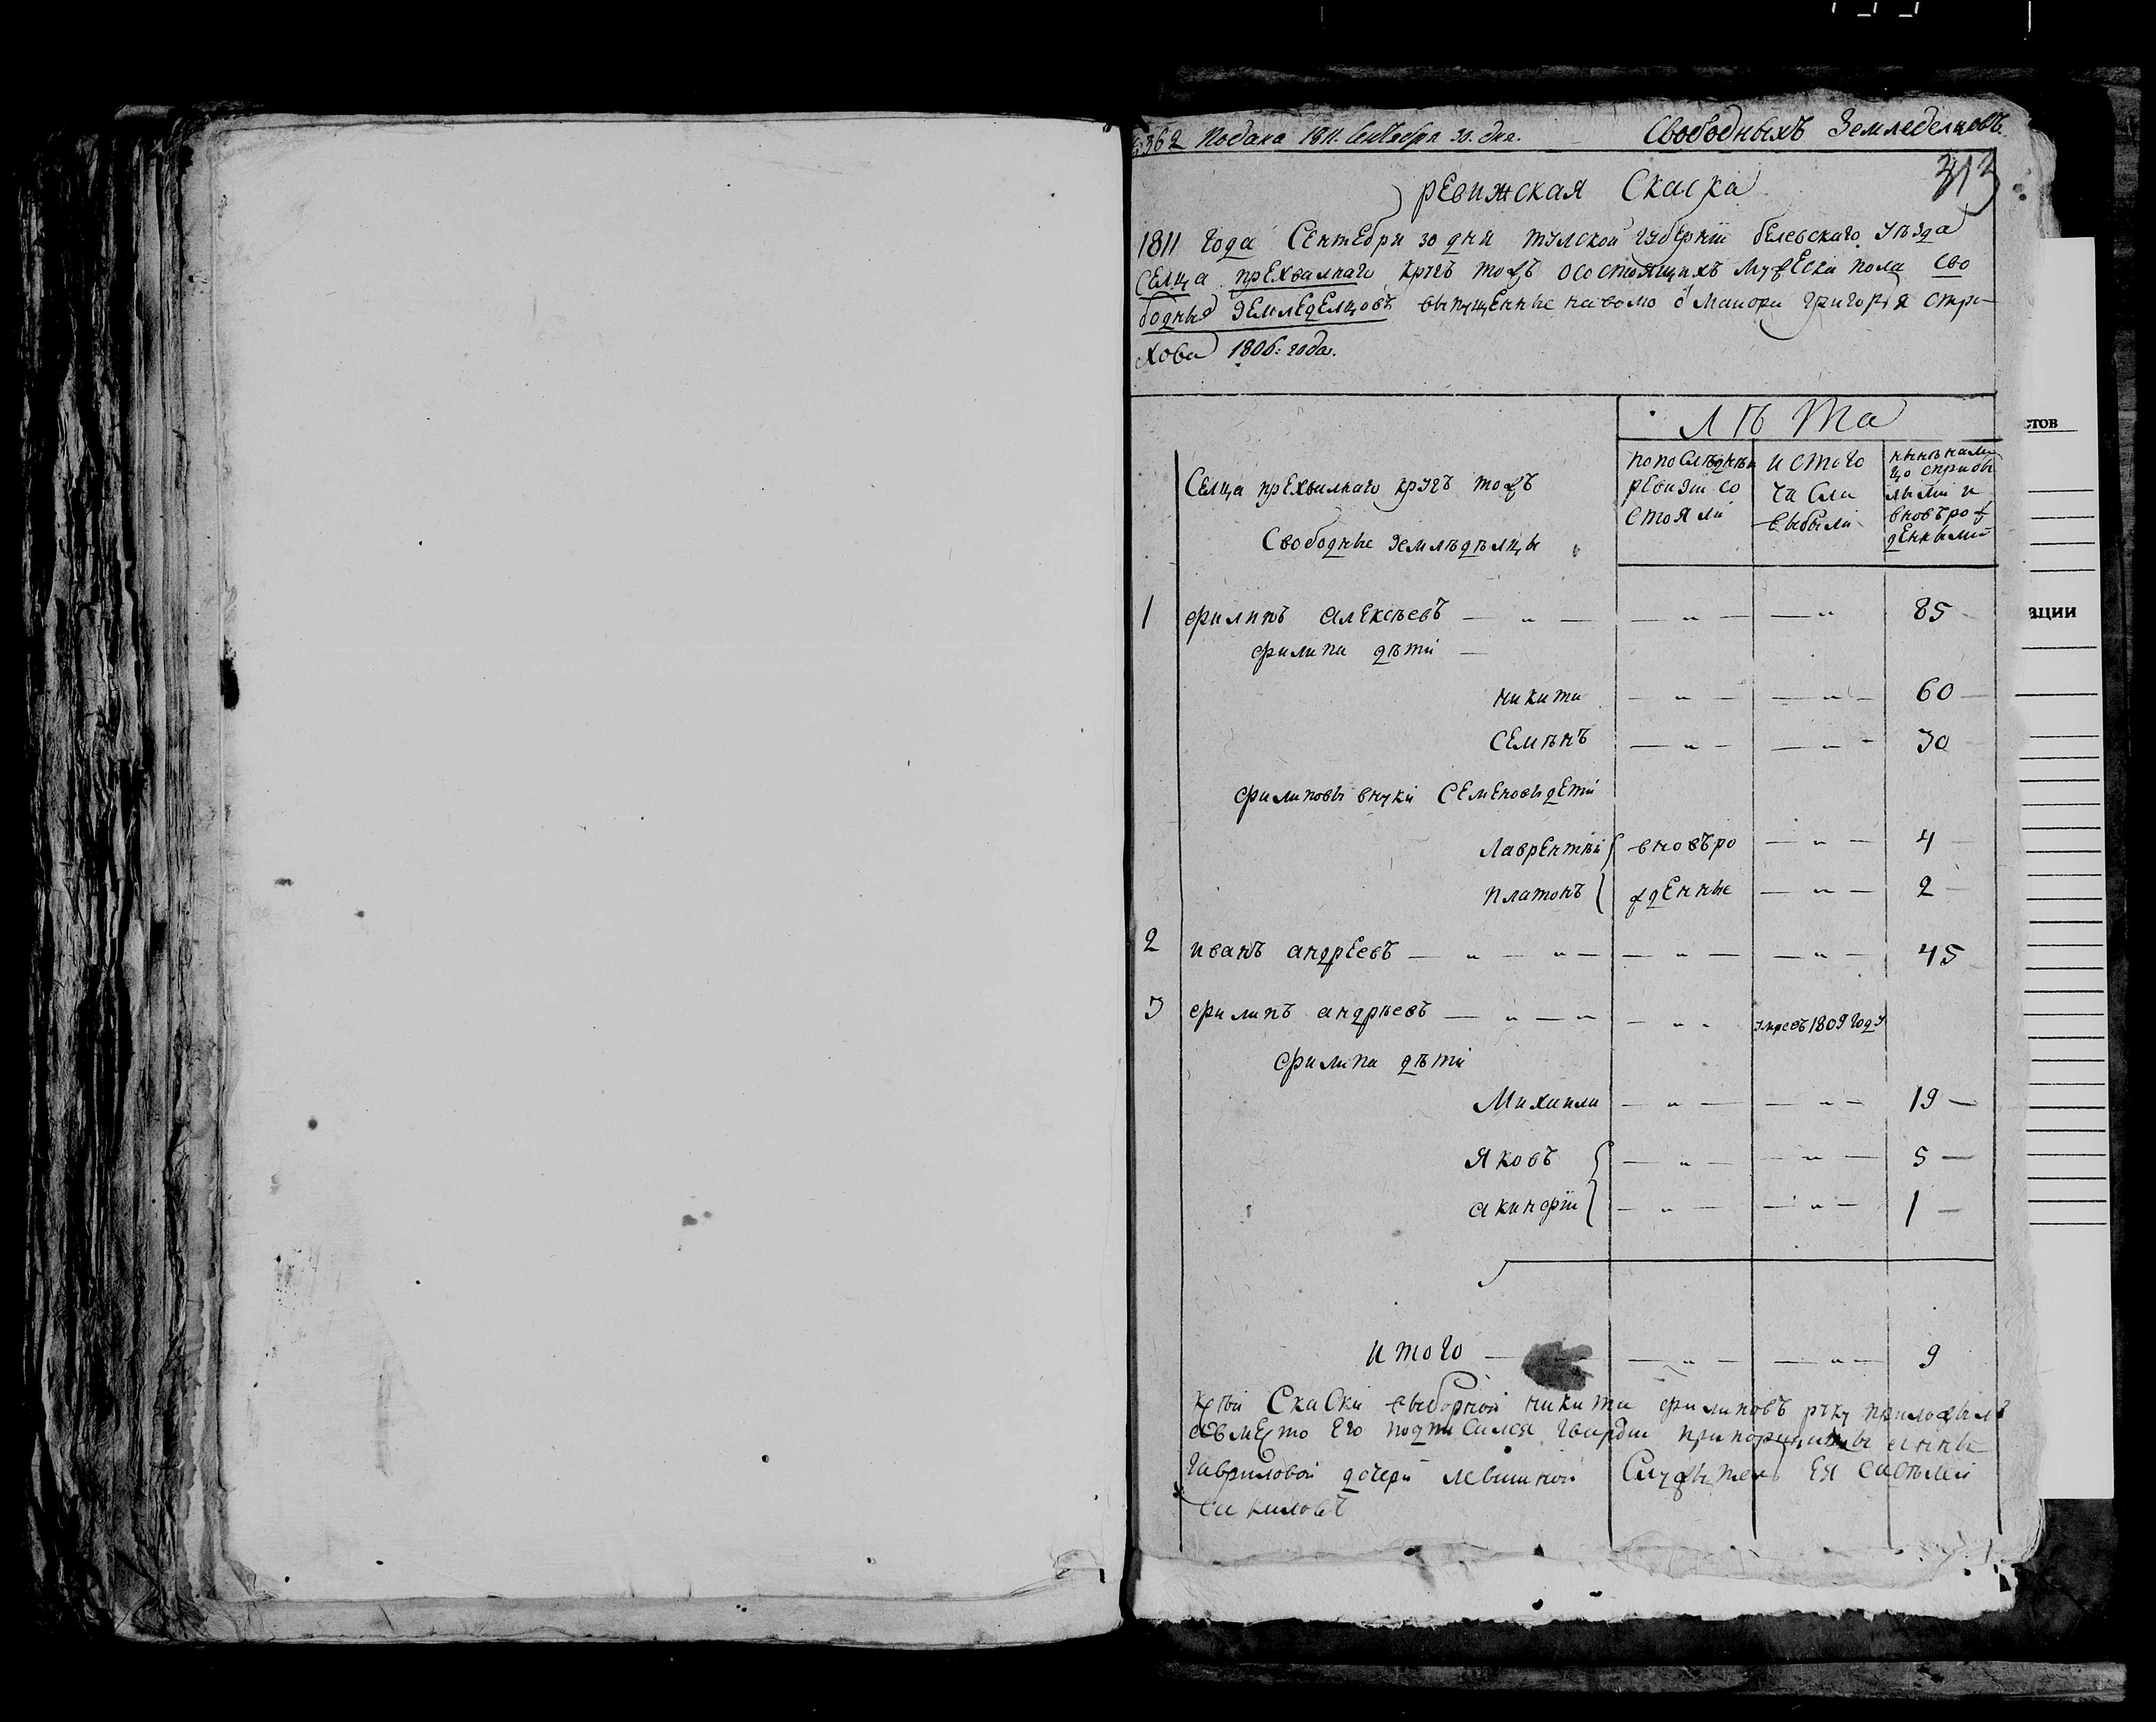 362 Подана 1811. Сентября 30. дня. Свободныхъ Земледелцовъ.
313
ревижская Скаска
1811 года Сентебри 30 дня тулской губернии белевскаго уѣзда
Селца прехвалнаго кругъ тожъ осостоящихъ мужеска пола сво
бодныя Земледелцовъ выпущенные наволю о маиора григория стра
хова 1806: года.
лѣта
Селца прехвалнаго кругъ тожъ
Свободные землѣдѣлцы
попослѣднѣи
ревизии со
стояли
истого
числа
выбыли
нынѣ нали
цо сприбы
лыми и
вновъ рож
денными
1 филипъ алексѣевъ — „ — — „ — — „ 85
филипа дѣти —
никита — „ — — „ — 60
Семѣнъ — „ — — „ — 30
филиповы внуки Семеновы дети
Лаврентѣи вновъро — „ — 4
платонъ жденные — „ — 2
2 иванъ андреевъ — „ — „ — — „ — — „ — 45
3 филипъ андрѣевъ — „ — „ — — „ - умревъ 1809 году
филипа дѣти
Михаила — „ — — „ — 19 —
Яковъ — „ — — „ — 5 —
акинфии — „ — — „ — 1 —
итого — — „ — — „ — 9
Ксѣи Скаски выборнои никита филиповъ руку приложылъ
авместо его подписался гвардии анны
гавриловой дочери левшиной Служытель ея савѣлей